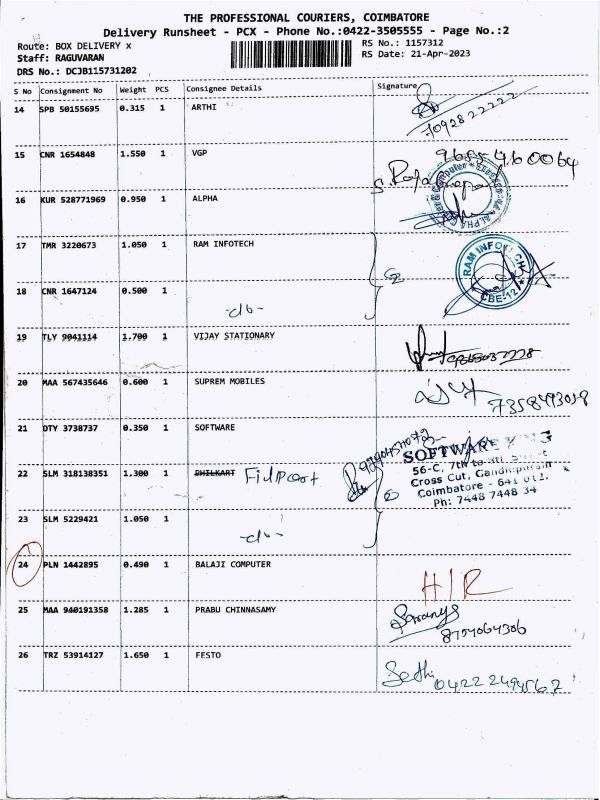 THE PROFESSIONAL COURIERS, COIMBATORE
Delivery Runsheet - PCX - Phone No.:0422-3505555 - Page No.:2
Route: BOX DELIVERY x RS No.: 1157312
Staff: RAGUVARAN RS Date: 21-Apr-2023
DRS No.: DCJB115731202
S No Consignment No Weight PCS Consignee Details Signature
14 SPB 50155695 0.315 1 ARTHI
7092822222
15 CNR 1654848 1.550 1 VGP 9685460064
16 KUR 528771969 0.950 1 ALPHA
17 TMR 3220673 1.050 1 RAM INFOTECH
RAM INFOTECH
CBE-12
18 CNR 1647124 0.500 1
-do-
19 TLY 9041114 1.700 1 VIJAY STATIONARY
20 MAA 567435646 0.600 1 SUPREM MOBILES
7358493018
21 DTY 3738737 0.350 1 SOFTWARE
SOFTWARE
56-C, 7th to 8th Street
Cross Cut, Gandhipuram
Coimbatore - 641 012.
Ph: 7448 7448 34
22 SLM 318138351 1.300 1 DHILKART
23 SLM 5229421 1.050 1
-do-
24 PLN 1442895 0.490 1 BALAJI COMPUTER H/R
25 MAA 940191358 1.285 1 PRABU CHINNASAMY
8754064306
26 TRZ 53914127 1.650 1 FESTO
Sethi 0422 2494567